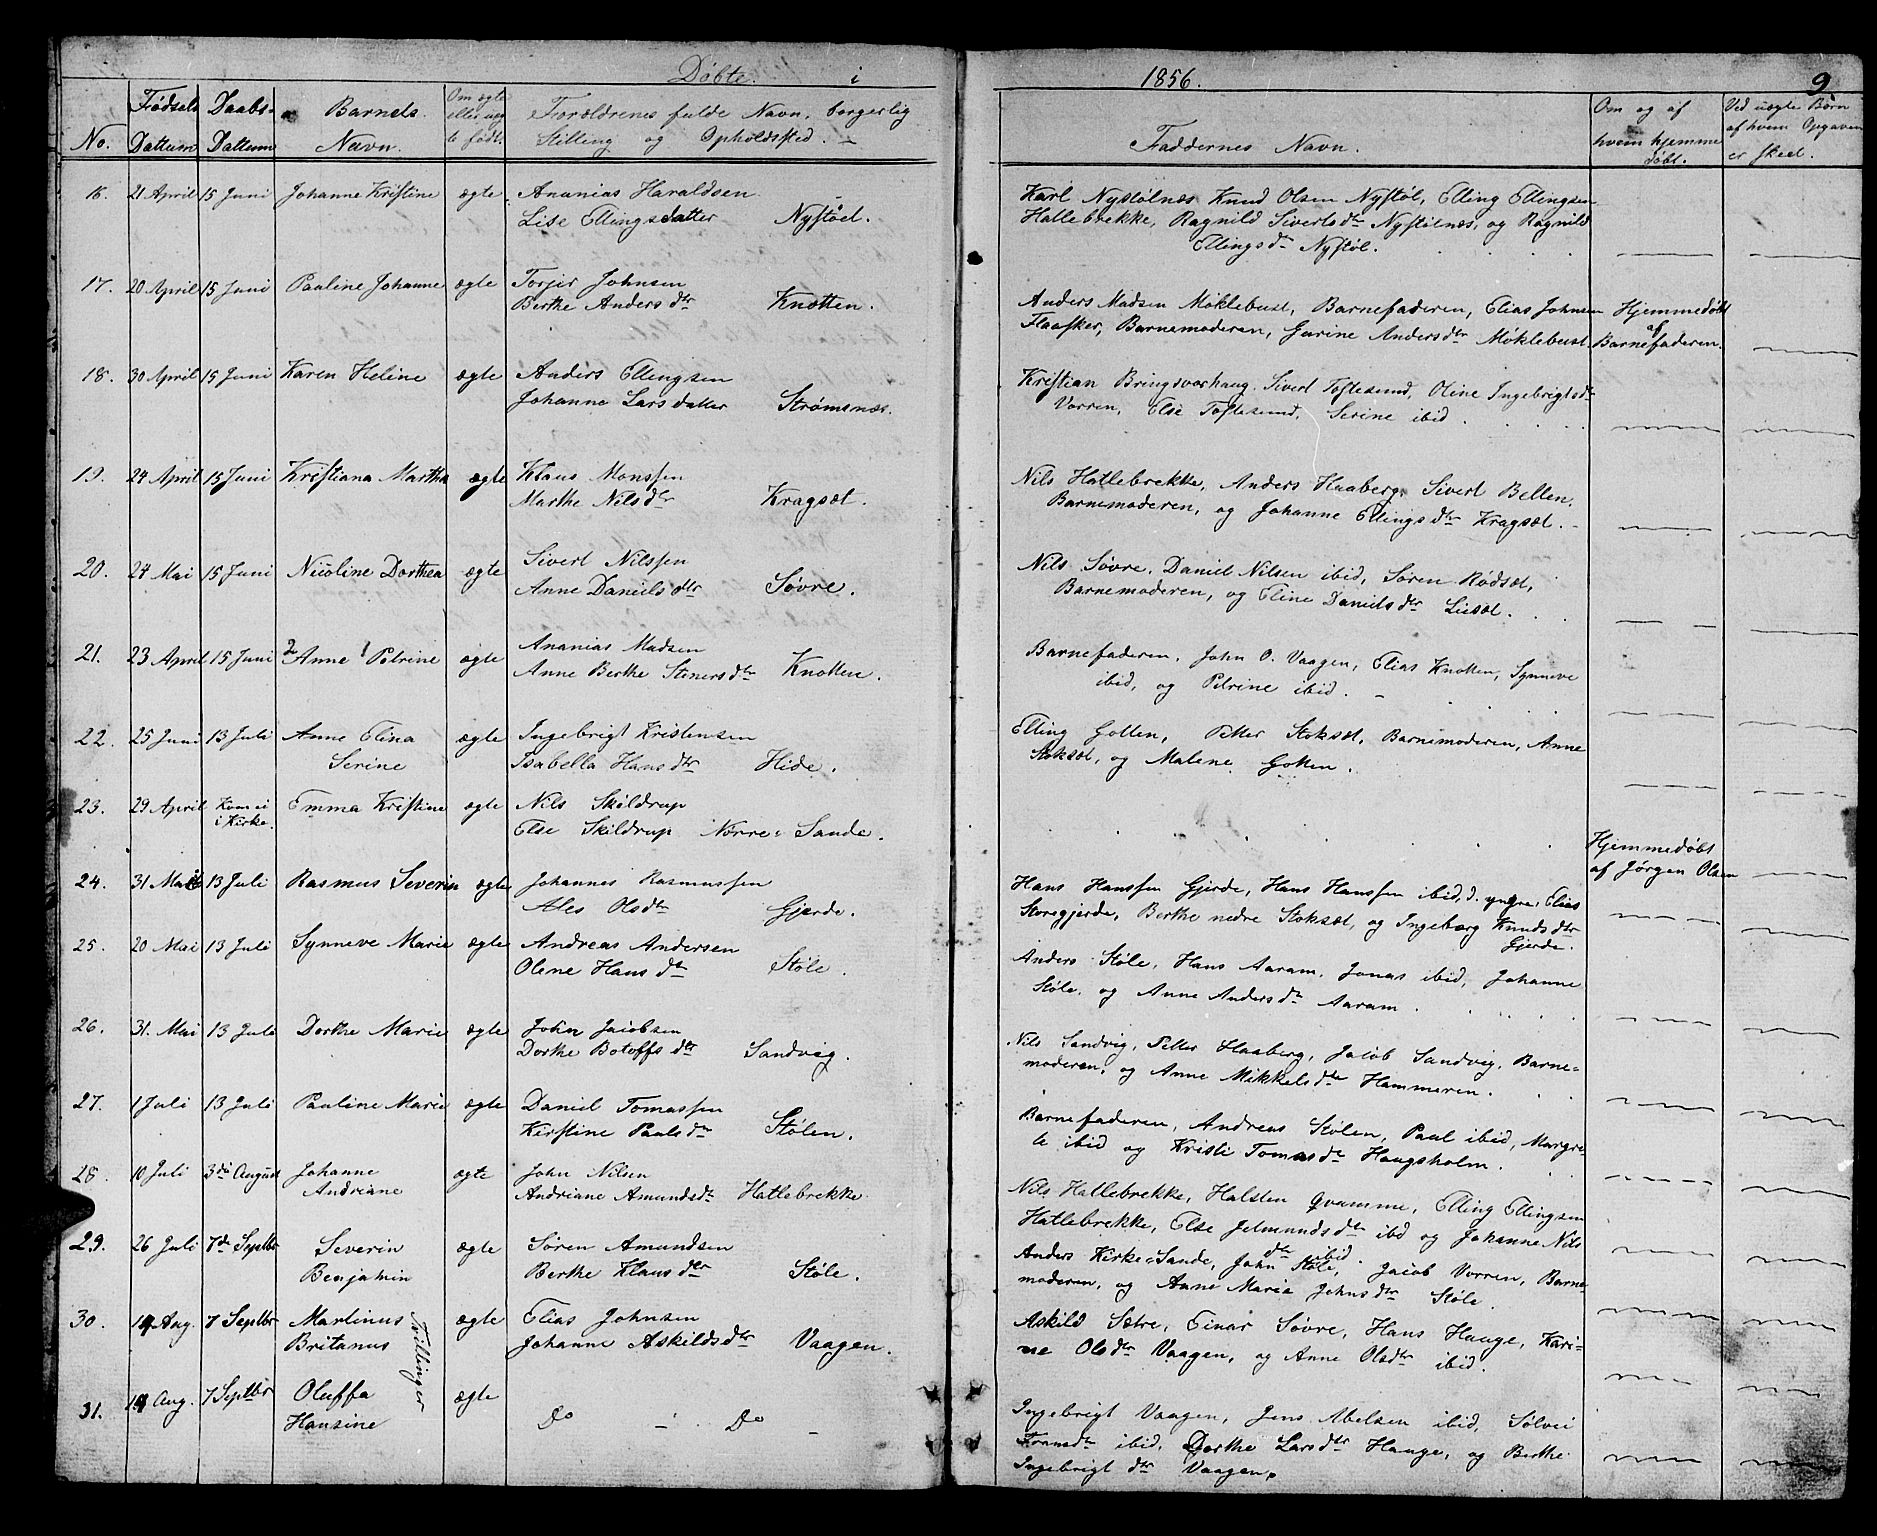 Døbte i 1856. 9.
No. Fødsels Dattum Daabs- Dattum Barnets Navn. Om ægte eller uæg te født. Forældrenes fulde Navn, borgerlig Stilling og Opholdsted. Faddernes Navn. Om og af hvem hjemme døbt. Ved uægte Børn af hvem Opgaven er skeet.
16. 21 April 15 Juni Johanne Kristine ægte Ananias Haraldsen
Lise Ellingsdatter Nystøel.
Karl Nystølnæs Knud Olsen Nystøl, Elling Ellingsen
Hatlebrekke, Ragnild Sivertsdtr Nystølnæs, og Ragnild
Ellingsdtr Nystøl.
17. 20 April 15 Juni Pauline Johanne ægte Torjer Johnsen
Berthe Andersdtr Knotten.
Anders Madsen Møklebust, Barnefaderen, Elias Johnsen Hjemmedøbt af
Flaasker, Barnemoderen, Gurine Andersdtr Møklebust. Barnefaderen.
18. 30 April 15 Juni Karen Heline ægte Anders Ellingsen
Johanne Larsdatter Strømsnæs.
Kristian Bringsvorhaug. Sivert Toftesund, Oline Ingebrigtsdtr
Vorren, Else Toftesund, Serine ibid.
19. 24 April 15 Juni Kristiana Martha ægte Klaus Monssen
Marthe Nilsdtr Kragsæt.
Nils Hatlebrekke, Anders Haaberg, Sivert Bellen,
Barnemoderen, og Johanne Ellingsdtr Kragsæt.
20. 24 Mai 15 Juni Nicoline Dorthea ægte Sivert Nilssen
Anne Danielsdtr Søvre.
Nils Søvre, Daniel Nilsen ibid, Søren Rødsæt,
Barnemoderen, og Eline Danielsdtr Liisæt.
21. 23 April 15 Juni 2 Anne 1 Petrine ægte Ananias Madsen
Anne Berthe Stenersdtr Knotten.
Barnefaderen, John O. Vaagen, Elias Knotten, Synneve
ibid, og Petrine ibid.
22. 25 Juni 13 Juli Anne Elina
Serine ægte Ingebrigt Kristensen
Isabella Hansdtr Hide.
Elling Gotten, Petter Stoksæt, Barnemoderen, Anne
Stoksæt, og Malene Gotten.
23. 29 April Kom ei
i Kirke. Emma Kristine ægte Nils Skildrup
Else Skildrup Nørre-Sande.
Hjemmedøbt
af Jørgen Olsen
24. 31 Mai 13 Juli Rasmus Severin ægte Johannes Rasmussen
Ales Olsdtr Gjerde.
Hans Hanssen Gjerde, Hans Hanssen ibid, d. yngre, Elias
Storegjerde, Berthe nedre Stoksæt, og Ingeborg Knudsdtr
Gjerde.
25. 20 Mai 13 Juli Synneve Marie ægte Andreas Andersen
Olene Hansdtr Støle.
Anders Støle, Hans Aaram, Jonas ibid, Johanne
Støle, og Anne Andersdtr Aaram.
26. 31. Mai 13 Juli Dorthe Marie ægte John Jacobsen
Dorthe Botolfsdtr Sandvig.
Nils Sandvig, Petter Haaberg, Jacob Sandvig, Barne-
moderen, og Anne Mikkelsdtr Hammeren.
27. 1 Juli 13 Juli Pauline Marie ægte Daniel Tomassen
Kirstine Paulsdtr Stølen.
Barnefaderen, Andreas Stølen, Paul ibid, Margre-
te ibid og Kristi Tomasdtr Haugsholm.
28. 10 Juli 3die August Johanne
Andriane ægte John Nilsen
Andriane Amundsdtr Hatlebrekke.
Nils Hatlebrekke, Halsten Qvamme, Elling Ellingsen
Hatlebrekke, Else Jetmundsdtr ibid og Johanne Nils
dtr ibid.
29. 26 Juli 7de Septbr Severin
Benjamin ægte Søren Amundsen
Berthe Klausdtr Støle.
Anders Kirke-Sande, John Støle, Jacob Vorren, Barne-
moderen, og Anne Marie Johnsdtr Støle.
30. 14 Aug. 7 Septbr Martinus
Britanus Tvillinger ægte Elias Johnsen
Johanne Askildsdtr Vaagen.
Askild Sætre, Einar Søvre, Hans Hauge, Kari-
ne Olsdtr Vaagen, og Anne Olsdtr ibid.
31. 14 Aug. 7 Septbr Oluffa
Hansine ægte Do - Do -
Ingebrigt Vaagen, Jens Abelsen ibid, Sølvei
Fransdtr ibid, Dorthe Larsdtr Hauge, og Berthe
Ingebrigtdtr Vaagen.